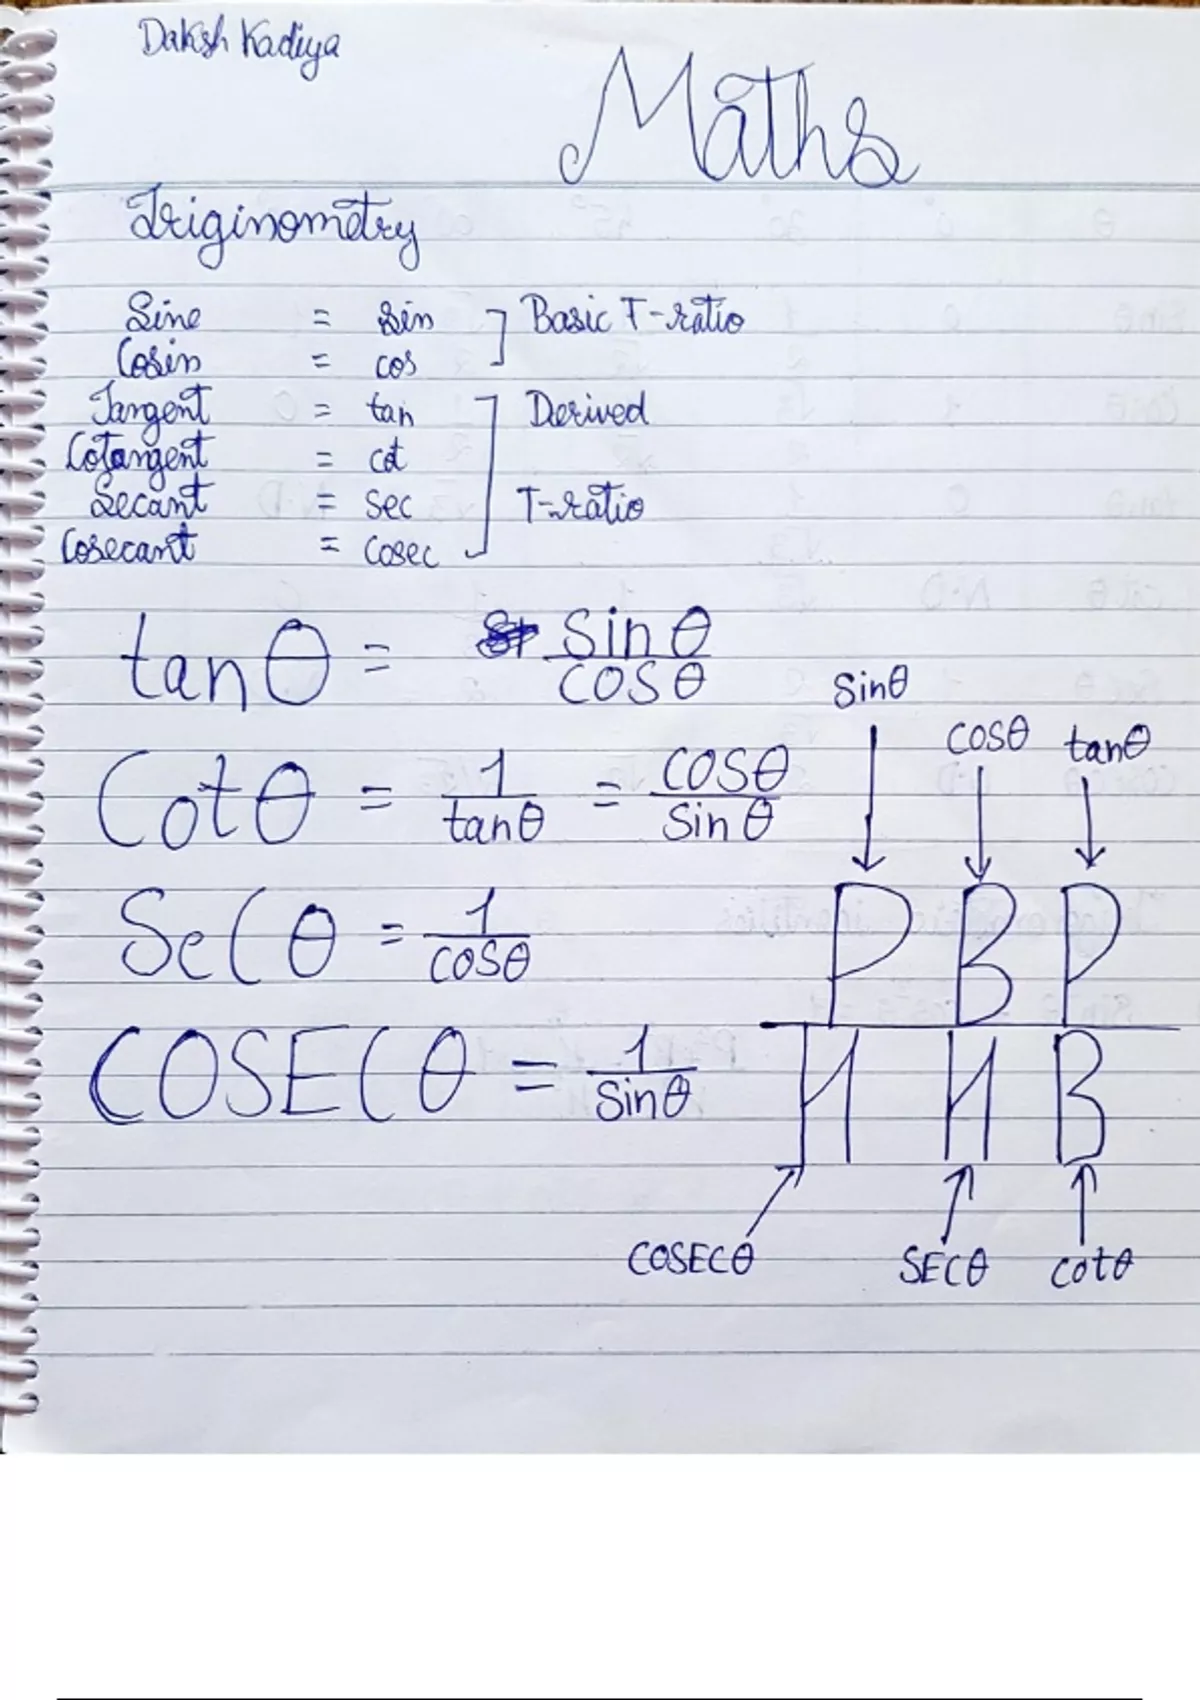 Daksh Kadiya
Maths
Triginometry
Sine = sin ] Basic T-ratio
Cosin = cos
Tangent = tan ] Derived
Cotangent = cot
Secant = sec T-ratio
Cosecant = cosec
tanθ = sinθ/cosθ
Cotθ = 1/tanθ = cosθ/sinθ
Secθ = 1/cosθ
COSECθ = 1/sinθ
Sinθ cosθ tanθ
P B P
H H B
COSECθ SECθ cotθ